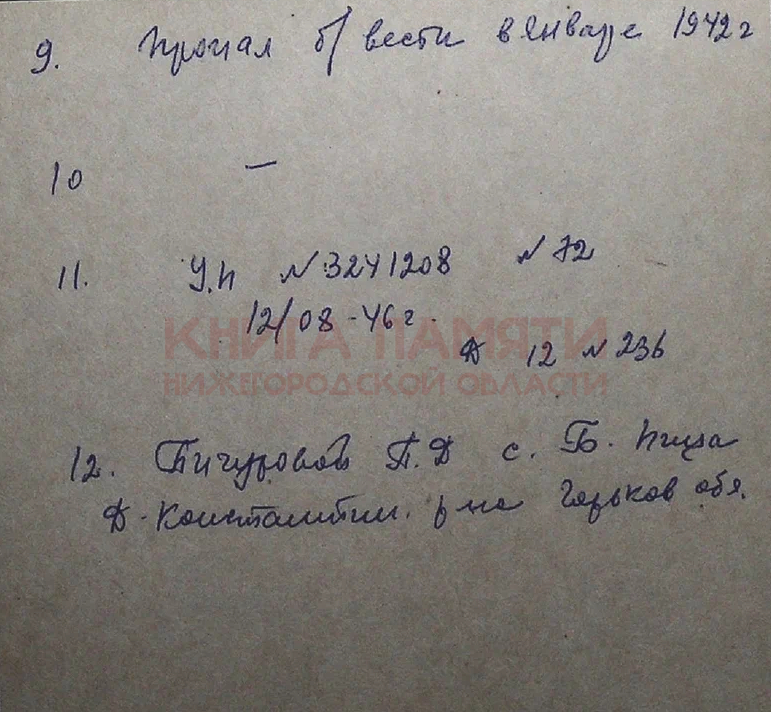 9. пропал б/ вести в январе 1942 г
10 —
11. У.п № 3241208 № 72
12/08 - 46 г.
КНИГА ПАМЯТИ
Д 12 № 236
НИЖЕГОРОДСКОЙ ОБЛАСТИ
12. Пичуровой П.Д с. Б. Пица
Д-Константин. р-на Горьков обл.